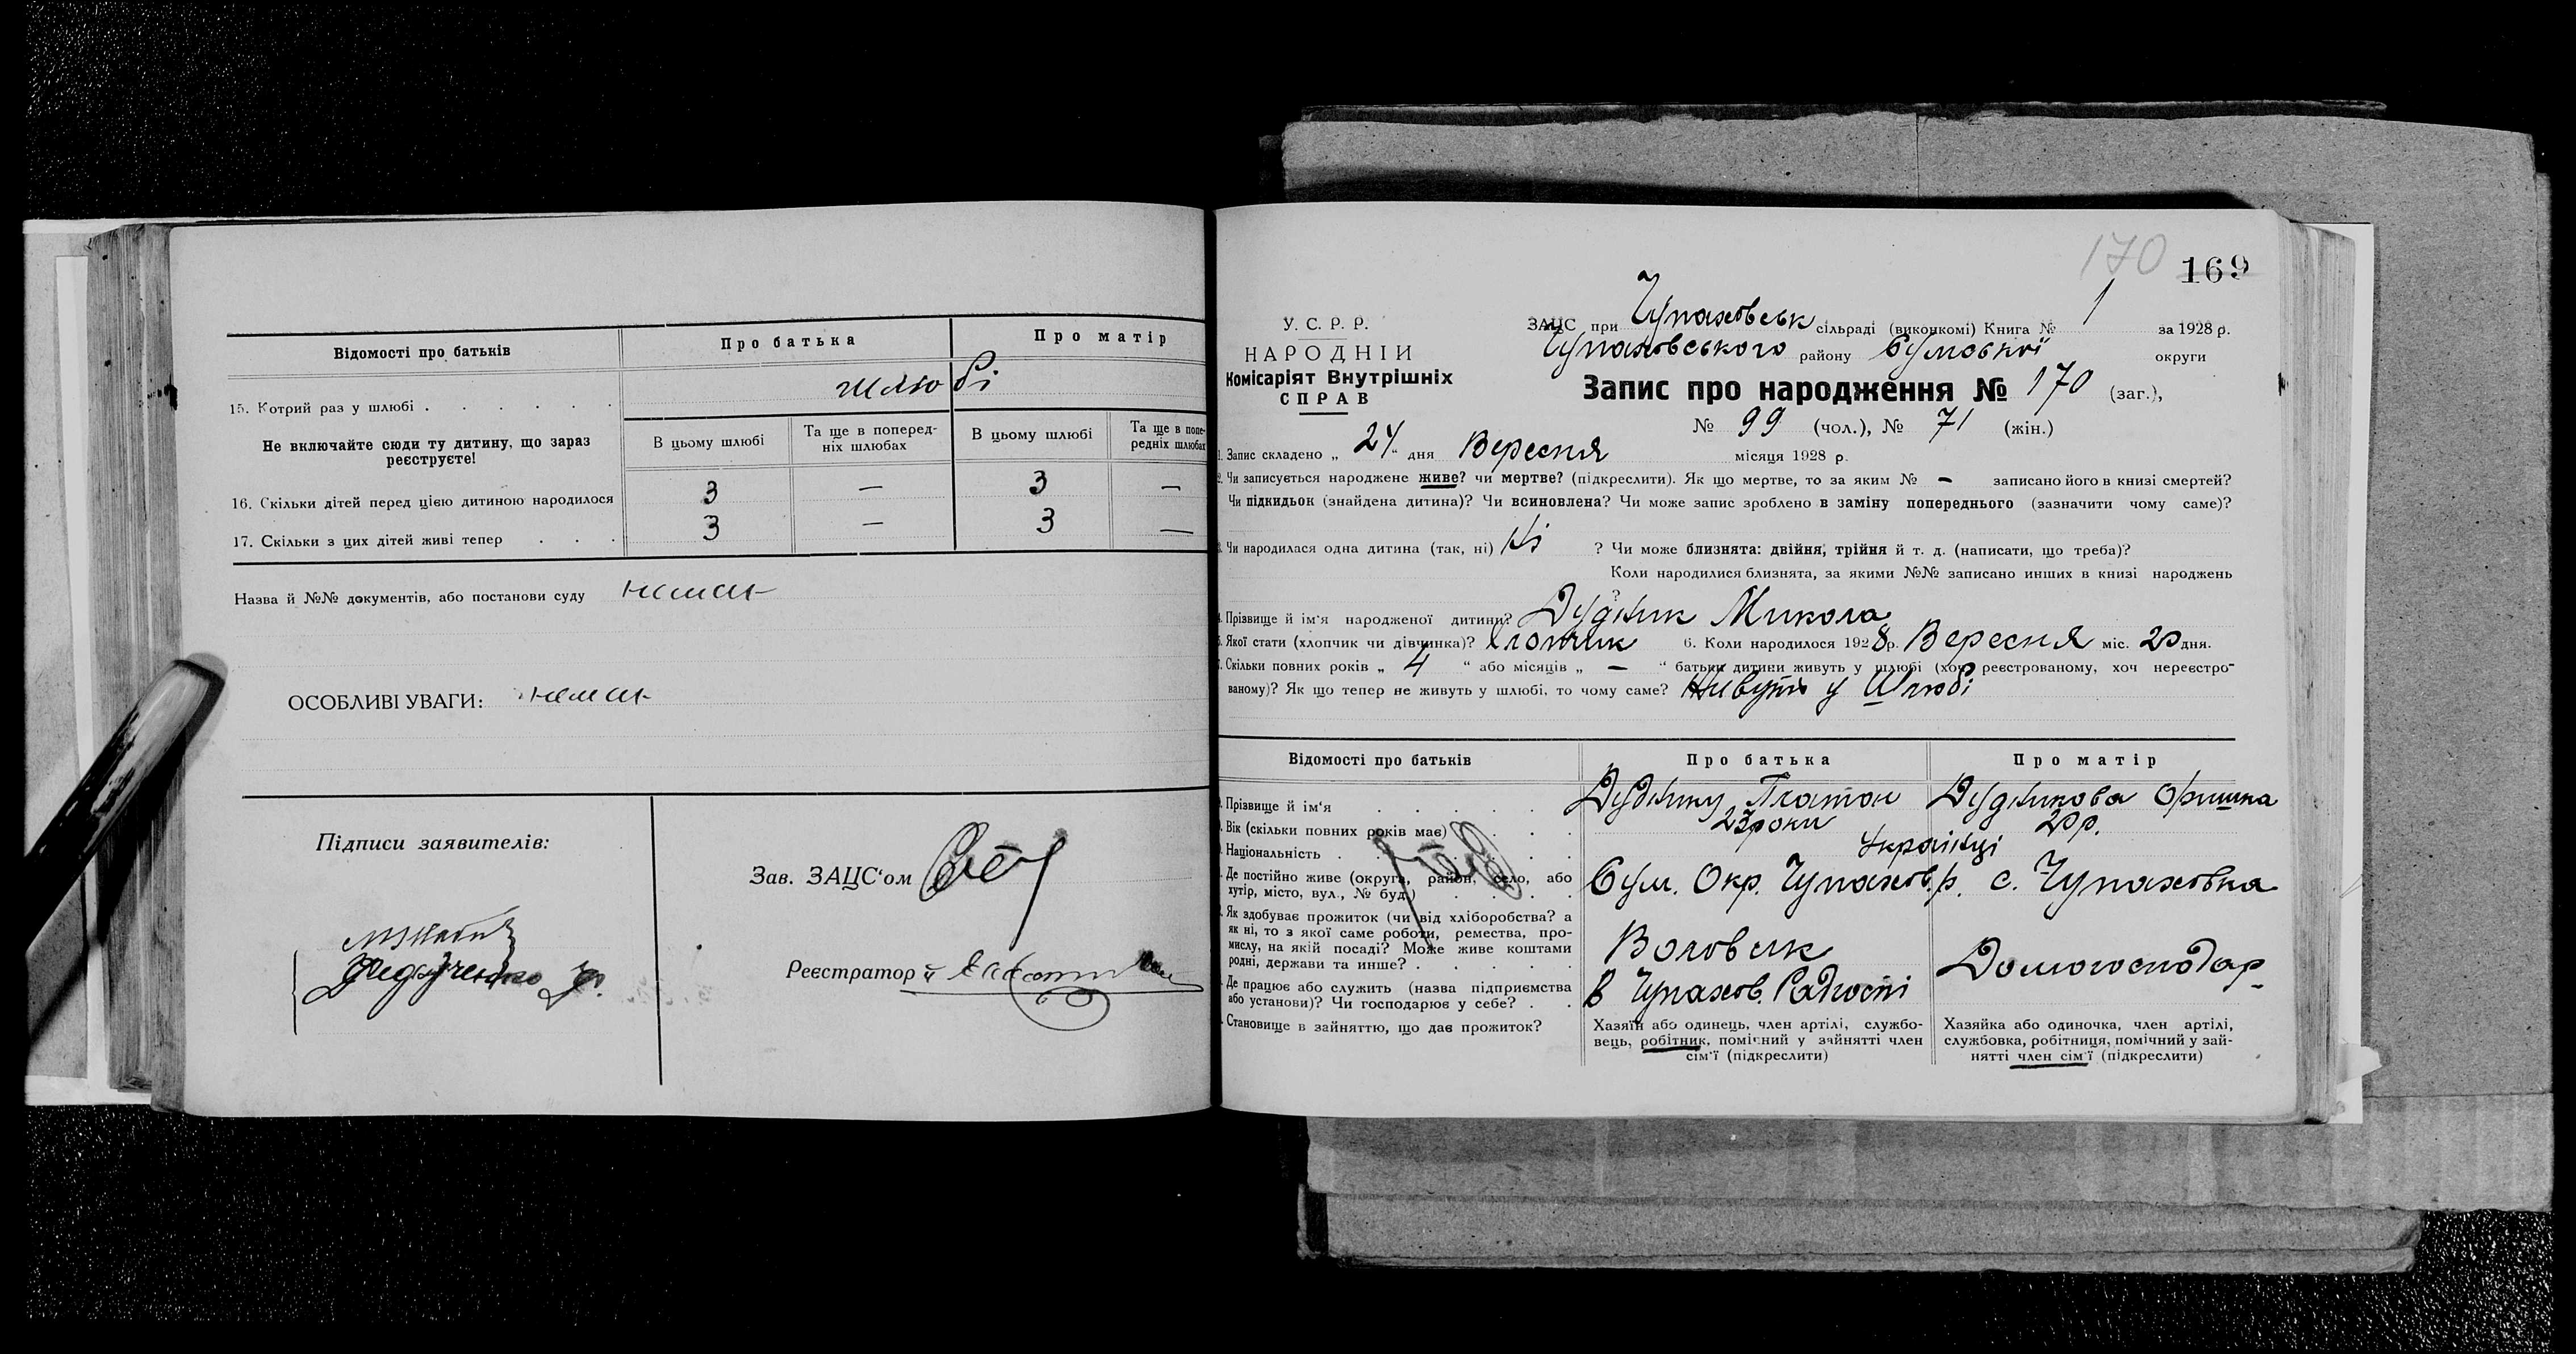 Відомості про батьків
Про батька
Про матір
15. Котрий раз у шлюбі . . . . . .
шлюбі
Не включайте сюди ту дитину, що зараз
реєструєте!
В цьому шлюбі
Та ще в поперед-
ніх шлюбах
В цьому шлюбі
Та ще в попе-
редніх шлюбах
16. Скільки дітей перед цією дитиною народилося
3 — 3 —
17. Скільки з цих дітей живі тепер . . .
3 — 3 —
Назва й №№ документів, або постанови суду немає
ОСОБЛИВІ УВАГИ: немає
Підписи заявителів:
Зав. ЗАЦС‘ом
Реєстратор
169
170
У. С. Р. Р.
НАРОДНІЙ
Комісаріят Внутрішніх
СПРАВ
ЗАЦС при Чупаховськ сільраді (виконкомі) Книга № 1 за 1928 р.
Чупаховського району Сумської округи
Запис про народження № 170 (заг.),
№ 99 (чол.), № 71 (жін.)
1. Запис складено „ 24 “ дня Вересня місяця 1928 р.
2. Чи записується народжене живе? чи мертве? (підкреслити). Як що мертве, то за яким № — записано його в книзі смертей?
Чи підкидьок (знайдена дитина)? Чи всиновлена? Чи може запис зроблено в заміну попереднього (зазначити чому саме)?
3. Чи народилася одна дитина (так, ні) Ні ? Чи може близнята: двійня, трійня й т. д. (написати, що треба)?
Коли народилися близнята, за якими №№ записано инших в книзі народжень
?
4. Прізвище й ім‘я народженої дитини? Дудник Микола
5. Якої стати (хлопчик чи дівчинка)? Хлопчик 6. Коли народилося 1928 р. Вересня міс. 20 дня.
7. Скільки повних років „ 4 “ або місяців „ — “ батьки дитини живуть у шлюбі (хоч реєстрованому, хоч нереєстро-
ваному)? Як що тепер не живуть у шлюбі, то чому саме? Живуть у Шлюбі
Відомості про батьків
Про батька
Про матір
Прізвище й ім‘я . . . . .
Платон
Дудникова Оришка
Вік (скільки повних років має) . . .
23 роки
20 р.
Національність . . . . . .
Українці
Де постійно живе (округа, район, село, або
хутір, місто, вул., № буд.) . . . .
Сум. Окр. Чупахов. р. с. Чупаховка
Як здобуває прожиток (чи від хліборобства? а
як ні, то з якої саме роботи, ремества, про-
мислу, на якій посаді? Може живе коштами
родні, держави та инше? . . . . .
Воловик
Домогосподар
Де працює або служить (назва підприємства
або установи)? Чи господарює у себе? . .
в Чупахов. Радгоспі
Становище в зайняттю, що дає прожиток?
Хазяїн або одинець, член артілі, службо-
вець, робітник, помічний у зайнятті член
сім‘ї (підкреслити)
Хазяйка або одиночка, член артілі,
службовка, робітниця, помічний у зай-
нятті член сім‘ї (підкреслити)